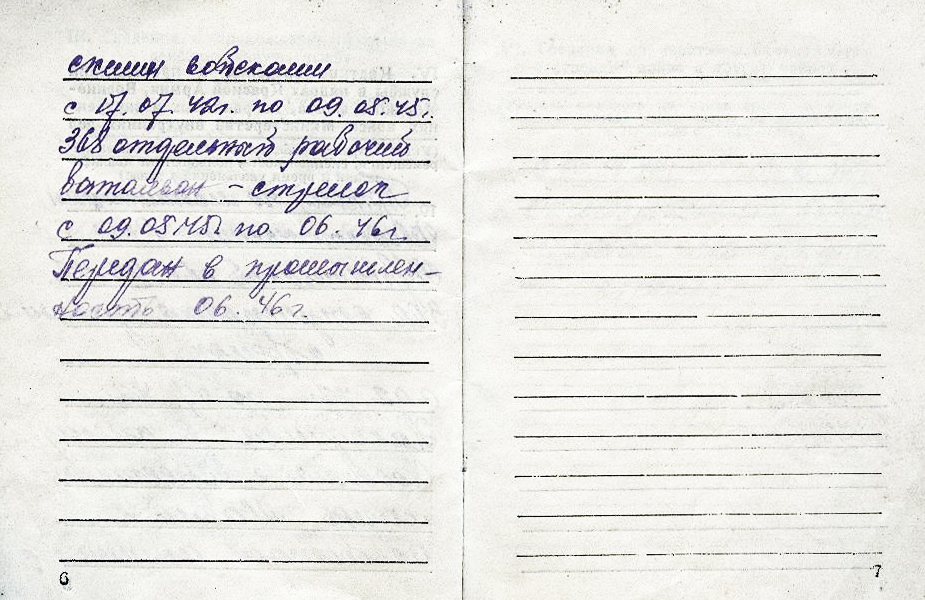 скими войсками
с 17.07.42г. по 09.05.45г.
368 отдельный рабочий
батальон - стрелок
с 09.05.45г. по 06.46г.
Передан в промышлен-
ность 06.46г.
6
7